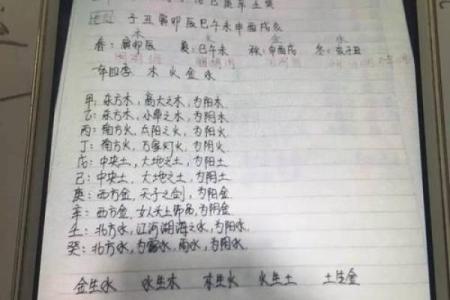 地支 子丑寅卯辰巳午未申酉戌亥
木 火 金 水
春:寅卯辰 夏:巳午未 秋:申酉戌 冬:亥子丑
年四季 木 火 金 水
甲:东方木,高大之木,为阳木
乙:东方木,小草之木,为阴木
丙:南方火,太阳之火,为阳火
丁:南方火,万家灯火,为阴火
戊:中央土,大地之土,为阳土
己:中央土,大地之土,为阴土
庚:西方金,天子之剑,为阳金
辛:西方金,女人首饰,为阴金
壬:北方水,江河湖海之水,为阳水
癸:北方水,为雾水,雨水,为阴水
金生水 水生木 木生火 火生土 土生金